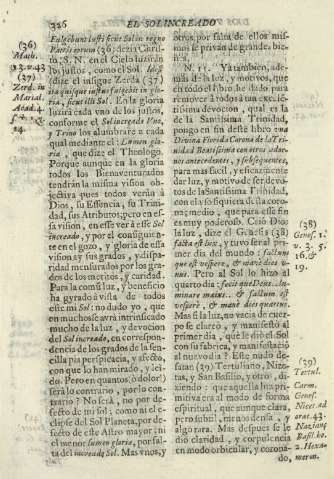 226 EL SOL INCREADO
Fulgebunt iusti sicut Sol in regno
Patris eorum (36) dezia Christ.
S. N. en el Cielo luzirán
los justos, como el Sol.
dize el insigne Zerda (27)
quisque iustus fulgebit in glo-
ria, sicut illi Sol. En la gloria
luzirá cada vno de los justos,
conforme el Sol increado Vno,
y Trino los alumbrare à cada
qual mediante el Lumen glo-
ria, que dize el Theologo.
Porque aunque en la gloria
todos los Bienaventurados
tendrán la misma vision ob-
jectiva pues todos verán à
Dios, su Essencia, su Trini-
dad, sus Atributos; pero en es-
sa vision, en esse ver à esse Sol
increado, y por el consiguien-
te en el gozo, y gloria de essa
vision ay sus grados, y dispa-
ridad mensurados por los gra-
dos de los meritos, y caridad.
Para la comũ luz, y beneficio
ha gyrado à vista de todos
este mi Sol: no dudo yo, que
en muchos se avrá intrinsicado
mucho de la luz, y devocion
del Sol increado, en correspon-
dencia de los grados de la sen-
cilla pia perspicacia, y afecto,
con que lo han mirado, y lei-
do. Pero en quantos (ò dolor!)
será lo contrario, y por lo con-
trario? No será, no por de-
fecto de mi Sol; como ni el e-
clipse del Sol Planeta, por de-
fecto de este Astro mayor; ni
el menor lumen gloria, por fal-
ta del increado Sol. Mas vnos, y
(36)
Math.
13. v. 43
(27)
Zerd. in
Marial.
Acad. 4.
14.
otros por falta de ellos mis-
mos se privan de grandes bie-
nes.
N. 11. Ya tambien, ade-
más de la luz, y motivos, que
en todo el libro he dado para
remover à todos à tan excele-
tissima devocion, qual es la
de la Santissima Trinidad,
pongo en fin deste libro vna
Divina Florida Corona de la Tri-
nidad Beatissima con otros ador-
nos antecedentes, y subsequentes,
para mas facil, y eficazmente
dar luz, y motivo de ser devo-
tos de la Santissima Trinidad,
con ella, so siquiera desta coro-
na; medio, que para esse fin
es muy poderoso. Crió Dios
la luz, dize el Genesis (38)
facta est lux, y tuvo ser al pri-
mer dia del mundo: factum
que est vespere, & mane dies v-
nus. Pero al Sol lo hizo al
quarto dia: fecit que Deus...lu-
minare maius.. & factum est
vespere, & mane dies quartus.
Mas si la luz, no vacia de cuer-
po se clareó, y manifestó al
primer dia, què le dió el Sol
con su fabrica, y manifestació
al nuevo dia? Este nudo de-
satan (29) Tertuliano, Nize-
tas, y San Basilio, y otro, di-
ziendo: que aquella luz pri-
mitiva era al modo de forma
espiritual, que aunque clara,
pero subtil, menos densa, y
algo rara. Mas despues se le
dio claridad, y corpulencia
en modo orbicular, y corona-
do,
(38)
Genes. 1.
v. 3. 5.
16. &
19.
(29)
Tertul.
Carm.
Genes.
Nicet. ad
orat. 43.
Nazianz.
Basil. ho.
2. Hexa-
meron.